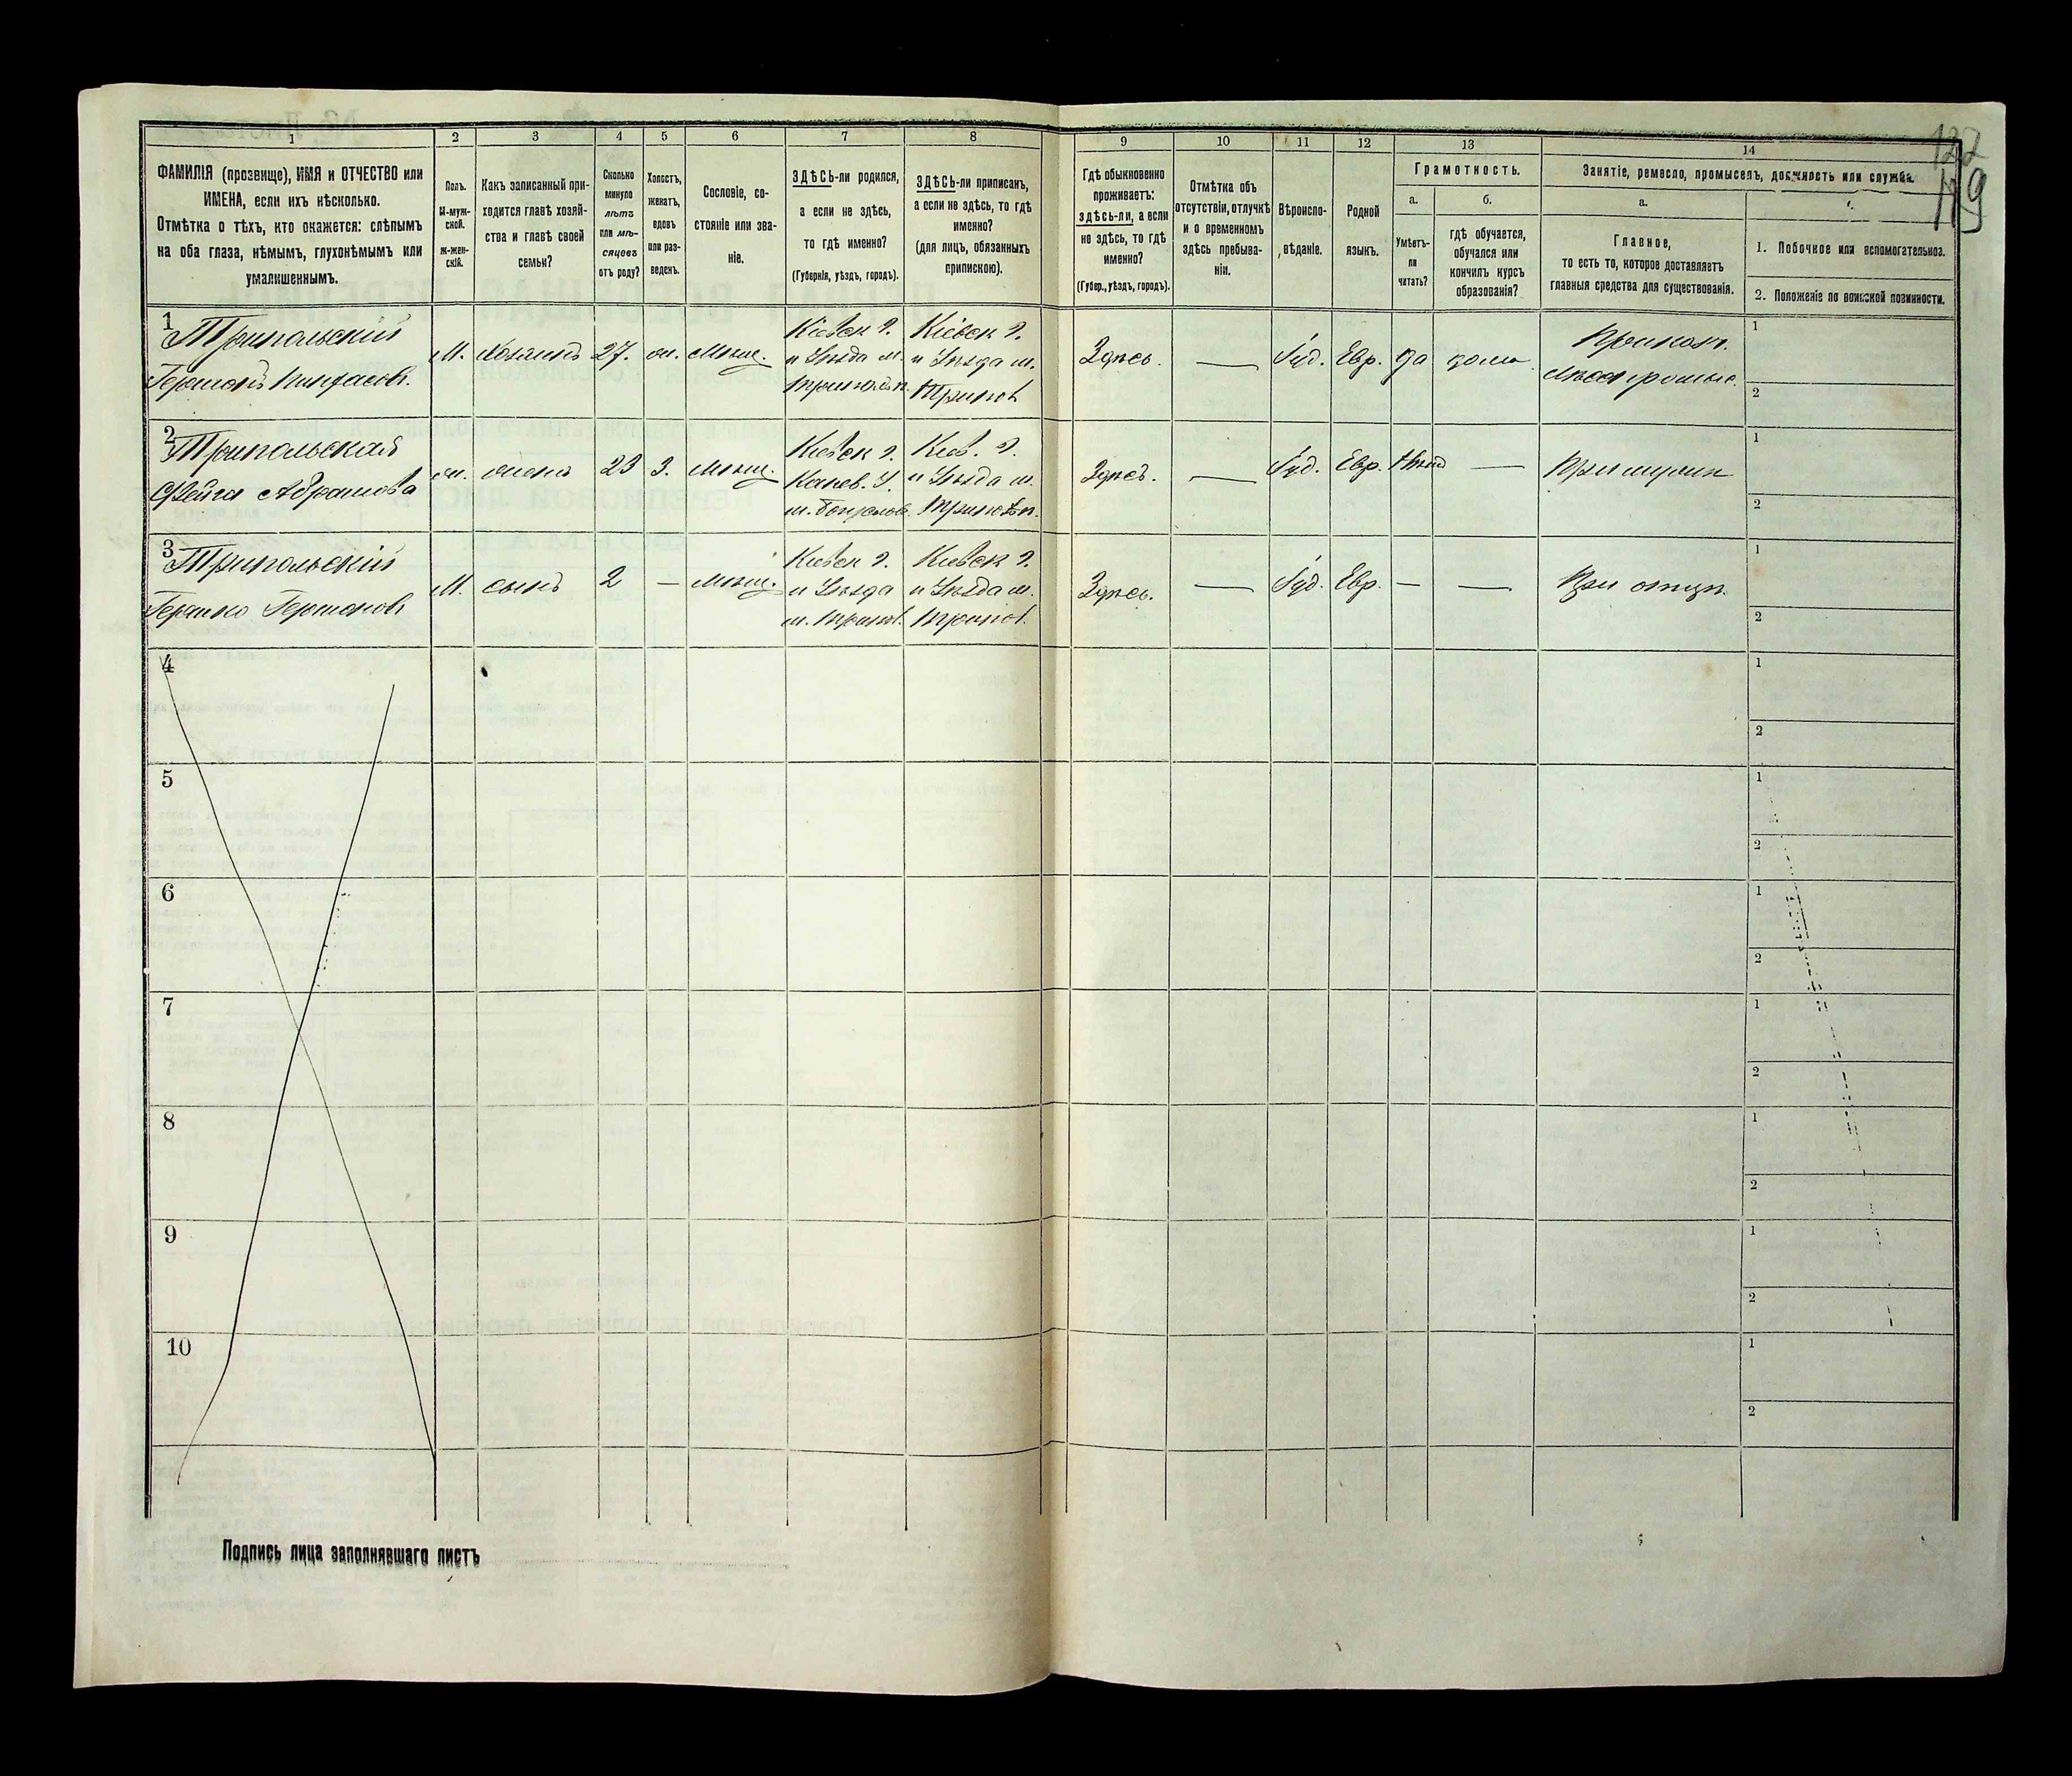 1
2
3
4
5
6
7
8
ФАМИЛІЯ (прозвище), ИМЯ и ОТЧЕСТВО или
ИМЕНА, если ихъ нѣсколько.
Отмѣтка о тѣхъ, кто окажется: слѣпымъ
на оба глаза, нѣмымъ, глухонѣмымъ или
умалишеннымъ.
Полъ.
М-муж-
ской.
Ж-жен-
скій.
Какъ записанный при-
ходится главѣ хозяй-
ства и главѣ своей
семьи?
Сколько
минуло
лѣтъ
или мѣ-
сяцевъ
отъ роду?
Холостъ,
женатъ,
вдовъ
или раз-
веденъ.
Сословіе, со-
стояніе или зва-
ніе.
ЗДѢСЬ-ли родился,
а если не здѣсь,
то гдѣ именно?
(Губернія, уѣздъ, городъ).
ЗДѢСЬ-ли приписанъ,
а если не здѣсь, то гдѣ
именно?
(для лицъ, обязанныхъ
припискою).
9
10
11
12
13
14
Гдѣ обыкновенно
проживаетъ:
здѣсь-ли, а если
не здѣсь, то гдѣ
именно?
(Губер., уѣздъ, городъ).
Отмѣтка объ
отсутствіи, отлучкѣ
и о временномъ
здѣсь пребыва-
ніи.
Вѣроиспо-
вѣданіе.
Родной
языкъ.
Грамотность.
а.
Умѣетъ-
ли
читать?
б.
гдѣ обучается,
обучался или
кончилъ курсъ
образованія?
Занятіе, ремесло, промыселъ, должность или служба.
а.
Главное,
то есть то, которое доставляетъ
главныя средства для существованія.
1. Побочное или вспомогательное.
2. Положеніе по воинской повинности.
122
119
1
Трипольскій
Гершонъ Пинхасов.
М.
Хозяинъ
27.
Мѣщ.
Кіевск г.
и Уѣзда м.
Кіевск г.
и Уѣзда м.
Здѣсь.
—
Іуд.
Евр.
да
дома
1
2
2
Трипольская
Фейга Абрамова
жена
23
З.
Мѣщ.
Кіевск г.
Канев. У.
Кіев. г.
и Уѣзда м.
Здѣсь.
—
Іуд.
Евр.
Нѣтъ
—
При мужѣ
1
2
3
Трипольскій
Гершонов
М.
сынъ
2
—
Мѣщ.
Кіевск г.
и Уѣзда
м. Трипол.
Кіевск г.
и Уѣзда м.
Трипол.
Здѣсь.
—
Іуд.
Евр.
—
—
При отцѣ.
1
2
4
1
2
5
1
2
6
1
2
7
1
2
8
1
2
9
1
2
10
1
2
Подпись лица заполнявшаго листъ